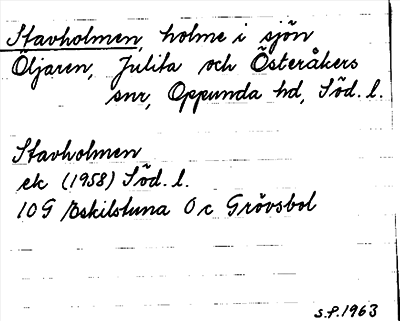 Stavholmen, holme i sjön
Öljaren, Julita och Österåkers
snr, Oppunda hd, Söd. l.
Stavholmen
ek (1958) Söd. l.
10G Eskilstuna 0c Grövsbol
S.P. 1963